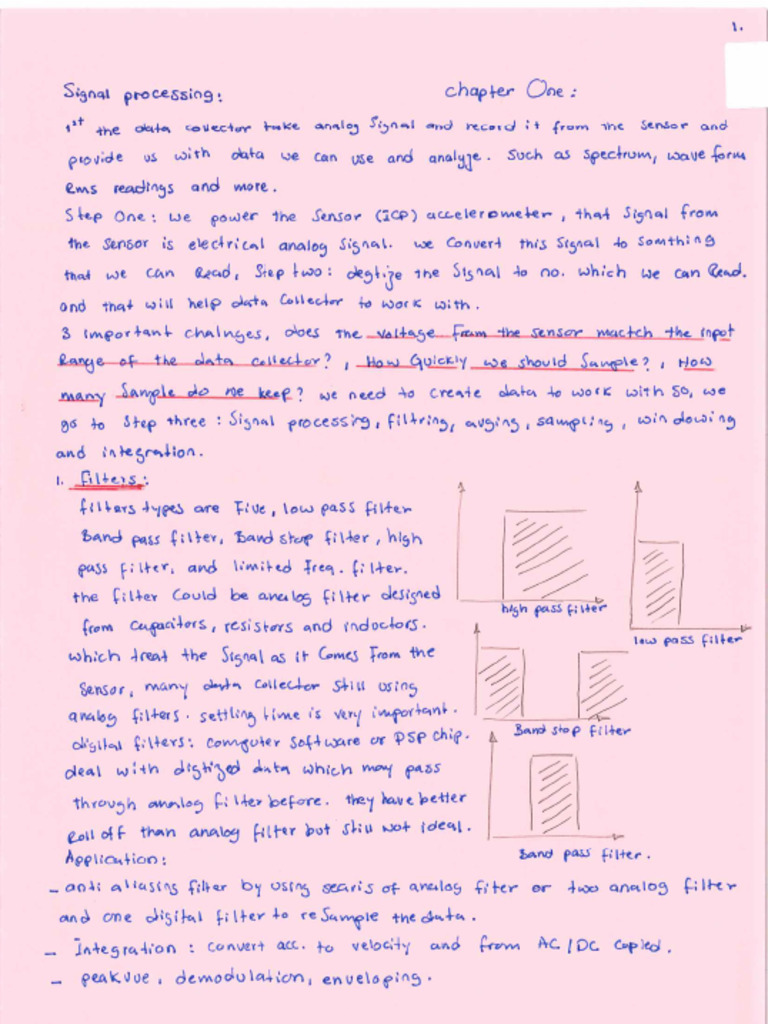 1.
Signal processing: chapter One:
1st the data covector take analog Signal and record it from the sensor and
provide us with data we can use and analyze. Such as spectrum, wave form
Rms readings and more.
Step One: we power the Sensor (ICP) accelerometer, that Signal from
the sensor is electrical analog Signal. we Convert this Signal to somthing
that we can Read, Step two: degtize the Signal to no. which we can Read.
and that will help data Collector to work with.
3 important chalnges, does the voltage from the sensor mactch the input
Range of the data collector?, How Quickly we should Sample?, How
many Sample do we keep? we need to create data to work with so, we
go to Step three: Signal processing, filtring, avging, sampling, windowing
and integration.
1. Filters:
filters types are Five, low pass filter
Band pass filter, Band stop filter, high
pass filter, and limited freq. filter.
the filter could be analog filter designed
from capacitors, resistors and inductors.
which treat the Signal as it Comes From the
sensor, many data Collector still using
analog filters. settling time is very important.
digital filters: computer software or DSP chip.
deal with digtized data which may pass
through analog filter before. they have better
Roll off than analog filter but still not ideal.
high pass filter
low pass filter
Band stop filter
Band pass filter.
Application:
- anti aliasing filter by using searis of analog fiter or two analog filter
and one digital filter to reSample the data.
- Integration: convert acc. to velocity and from AC/DC Copied.
- peakvue, demodulation, enveloping.